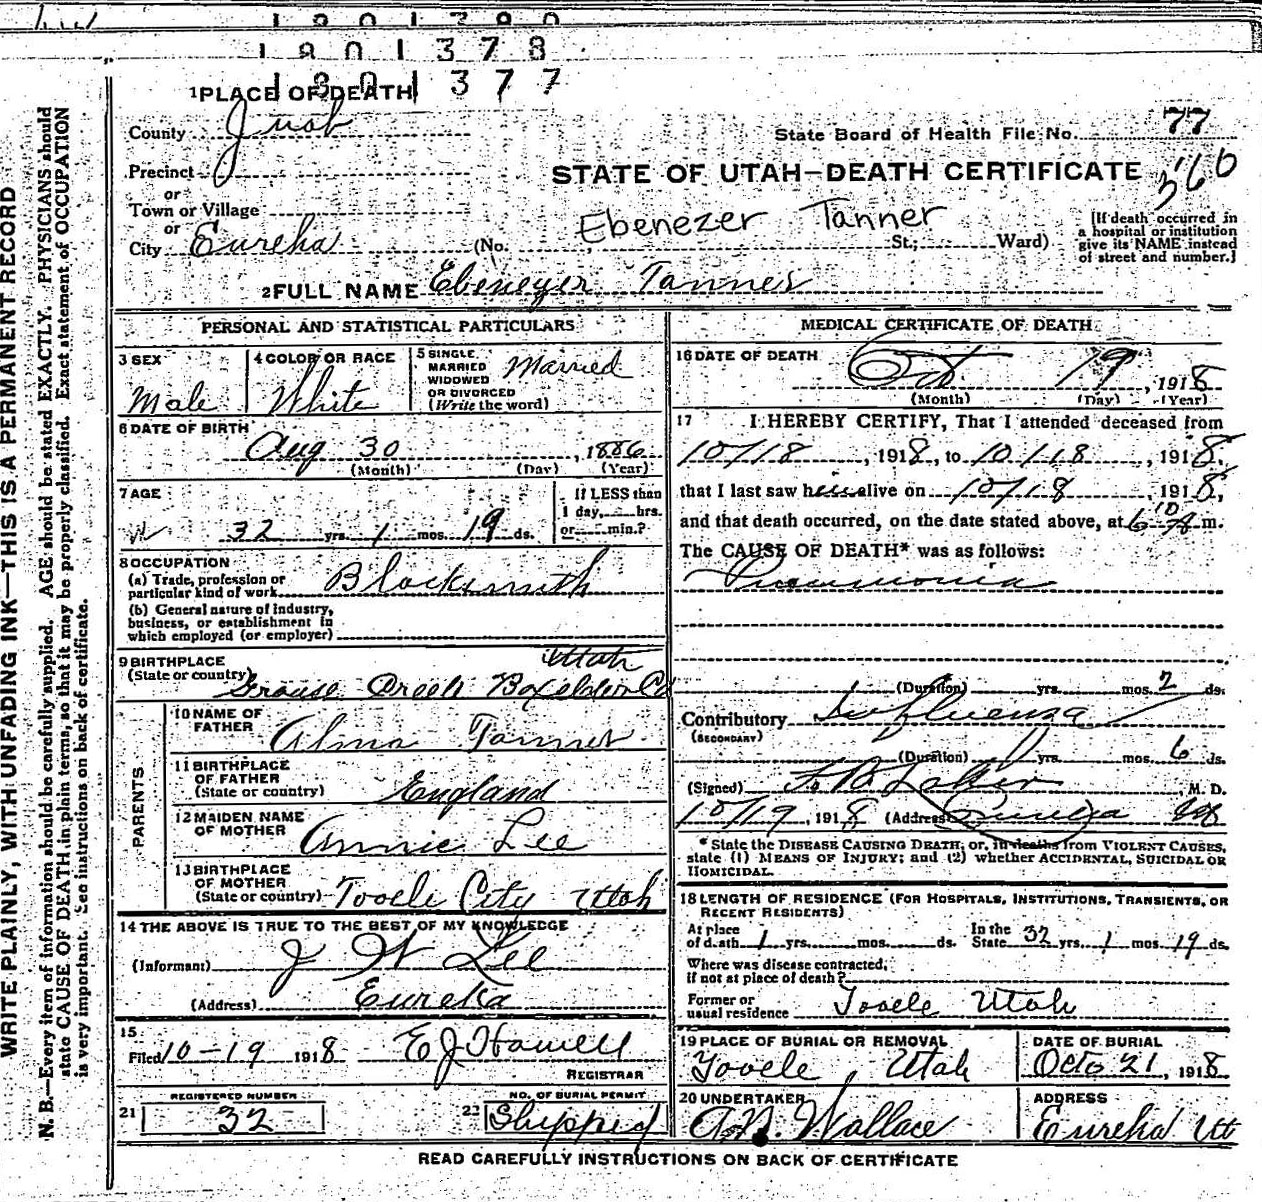 1801378
1801377
1 PLACE OF DEATH
County Juab
State Board of Health File No. 77
Precinct
STATE OF UTAH—DEATH CERTIFICATE 360
or
Town or Village
or
City Eureka (No. Ebenezer Tanner St.; Ward)
[If death occurred in
a hospital or institution
give its NAME instead
of street and number.]
2 FULL NAME Ebenezer Tanner
PERSONAL AND STATISTICAL PARTICULARS
3 SEX
Male
4 COLOR OR RACE
White
5 SINGLE
MARRIED
WIDOWED
OR DIVORCED
(Write the word)
Married
6 DATE OF BIRTH
Aug 30, 1886
(Month) (Day) (Year)
7 AGE
32 yrs. 1 mos. 19 ds.
If LESS than
1 day, hrs.
or min.?
8 OCCUPATION
(a) Trade, profession or
particular kind of work Blacksmith
(b) General nature of industry,
business, or establishment in
which employed (or employer)
9 BIRTHPLACE
(State or country) Utah
Grouse Creek Boxelder Co
PARENTS
10 NAME OF
FATHER Alma Tanner
11 BIRTHPLACE
OF FATHER
(State or country) England
12 MAIDEN NAME
OF MOTHER Annie Lee
13 BIRTHPLACE
OF MOTHER
(State or country) Tooele City Utah
14 THE ABOVE IS TRUE TO THE BEST OF MY KNOWLEDGE
(Informant) J W Lee
(Address) Eureka
15
Filed 10-19 1918 E J Howell
REGISTRAR
21 REGISTERED NUMBER
32
22 NO. OF BURIAL PERMIT
Shipped
MEDICAL CERTIFICATE OF DEATH
16 DATE OF DEATH
Oct 19, 1918
(Month) (Day) (Year)
17 I HEREBY CERTIFY, That I attended deceased from
10/18, 1918, to 10/18, 1918.
that I last saw him alive on 10/18, 1918,
and that death occurred, on the date stated above, at 6 m.
The CAUSE OF DEATH* was as follows:
Pneumonia
(Duration) yrs. mos. 2 ds.
Contributory Influenza
(SECONDARY)
(Duration) yrs. mos. 6 ds.
(Signed) , M. D.
10/19, 1918 (Address)
* State the DISEASE CAUSING DEATH, or, in deaths from VIOLENT CAUSES,
state (1) MEANS OF INJURY; and (2) whether ACCIDENTAL, SUICIDAL OR
HOMICIDAL.
18 LENGTH OF RESIDENCE (FOR HOSPITALS, INSTITUTIONS, TRANSIENTS, OR
RECENT RESIDENTS)
At place
of death 1 yrs. mos. ds.
In the
State 32 yrs. 1 mos. 19 ds.
Where was disease contracted,
if not at place of death?
Former or
usual residence Tooele Utah
19 PLACE OF BURIAL OR REMOVAL
Tooele, Utah
DATE OF BURIAL
Octo 21, 1918
20 UNDERTAKER
Wallace
ADDRESS
Eureka Ut
READ CAREFULLY INSTRUCTIONS ON BACK OF CERTIFICATE
WRITE PLAINLY, WITH UNFADING INK—THIS IS A PERMANENT RECORD
N. B.—Every item of information should be carefully supplied. AGE should be stated EXACTLY. PHYSICIANS should
state CAUSE OF DEATH in plain terms, so that it may be properly classified. Exact statement of OCCUPATION
is very important. See instructions on back of certificate.